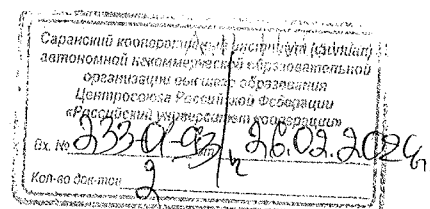 Саранский кооперативный институт (филиал)
автономной некоммерческой образовательной
организации высшего образования
Центросоюза Российской Федерации
«Российский университет кооперации»
Вх. № 233-01-93 от 26.02.2024
Кол-во док-тов 2